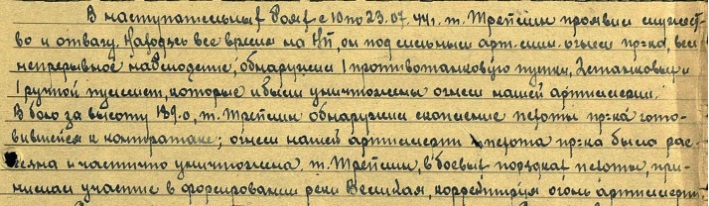 В наступательных боях с 10 по 23.07.44г. т. Трепшин проявил мужест-
во и отвагу. Находясь все время на НП, он под сильным арт. мин. огнем пр-ка, вел
непрерывное наблюдение, обнаружил 1 противотанковую пушку, 2 станковых и
1 ручной пулемет, которые и были уничтожены огнем нашей артиллерии.
В бою за высоту 189.0, т. Трепшин обнаружил скопление пехоты пр-ка гото-
вившейся к контратаке; огнем нашей артиллерии пехота пр-ка была рас-
сеяна и частично уничтожена. т. Трепшин, в боевых порядках пехоты, при-
нимал участие в форсировании реки Великая, корректируя огонь артиллерии.